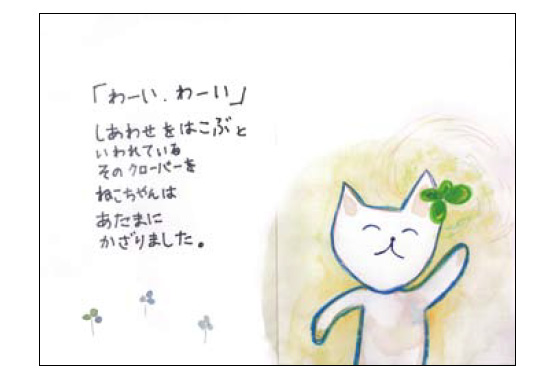 「わーい、わーい」
しあわせをはこぶと
いわれている
そのクローバーを
ねこちゃんは
あたまに
かざりました。